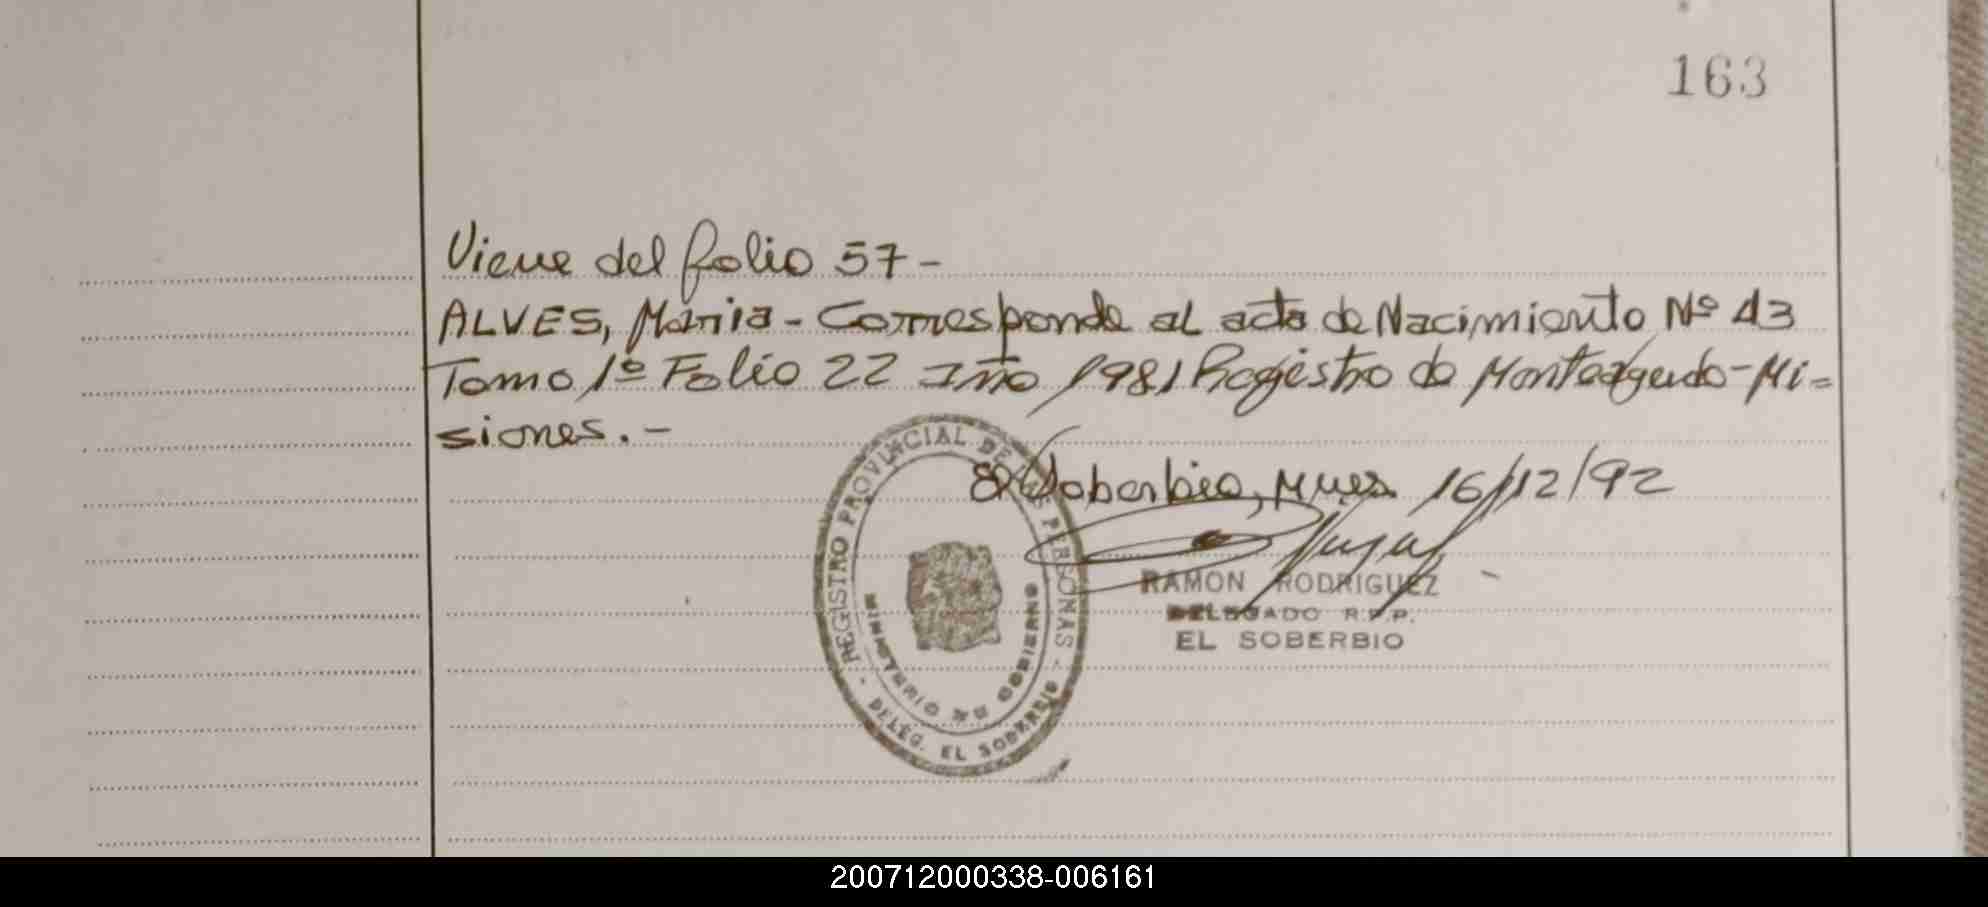 163
Viene del folio 57-
ALVES, Maria - Corresponde al acta de Nacimiento Nº 43
Tomo 1º Folio 22 Año 1981 Registro de Monteagudo - Mi=
siones.-
El Soberbio, Mnes 16/12/92
REGISTRO PROVINCIAL DE LAS PERSONAS - DELEG. EL SOBERBIO -
MINISTERIO DE GOBIERNO
RAMON RODRIGUEZ
DELEGADO R.P.P.
EL SOBERBIO
200712000338-006161